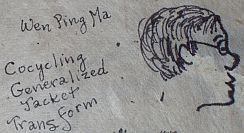 Wen Ping Ma
Cocycling
Generalized
Jacket
Transform